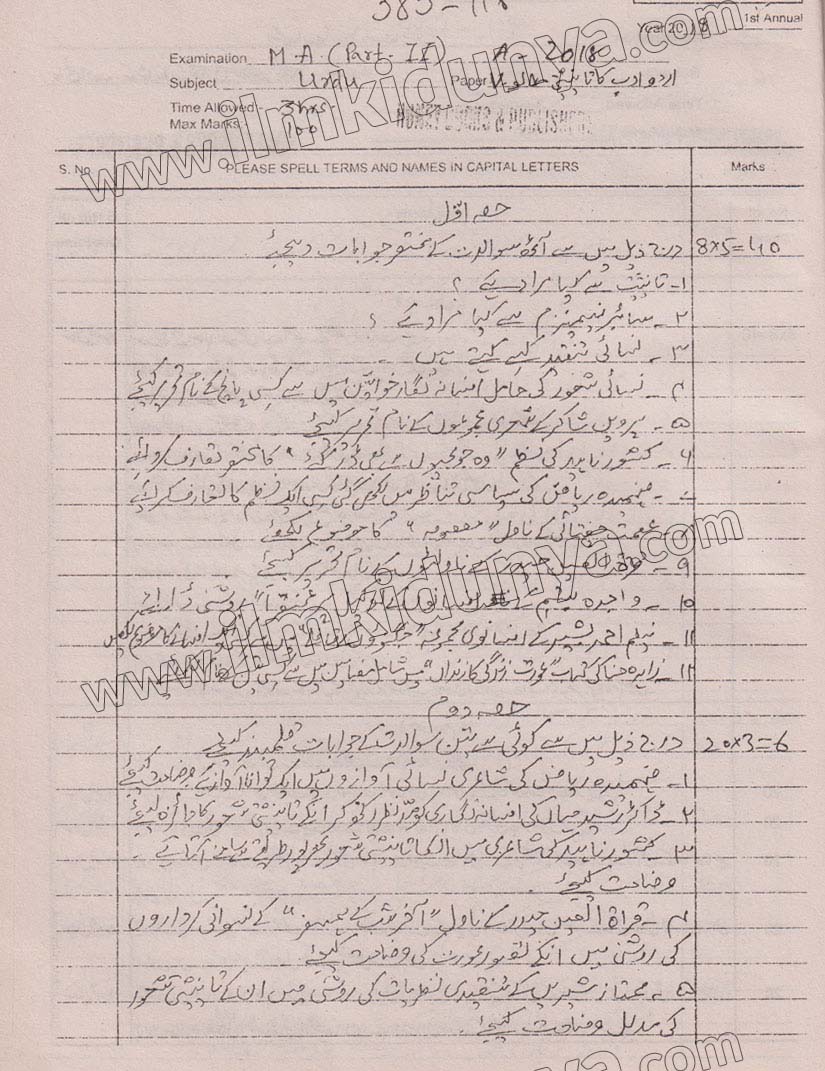 383-118
Year 2018 1st Annual
Examination M.A (Part-II) A-2018
Subject Urdu Paper V اردو ادب کا تانیثی مطالعہ
Time Allowed:- 3hrs-
Max Marks:- 100
S. No. PLEASE SPELL TERMS AND NAMES IN CAPITAL LETTERS Marks
حصہ اول
درج ذیل میں سے آٹھ سوالات کے مختصر جوابات دیجئے 8x5=40
۱- تانیثیت سے کیا مراد ہے ؟
۲- سائبر فیمینزم سے کیا مراد ہے ؟
۳- نسائی تنقید کسے کہتے ہیں -
۴- نسائی شعور کی حامل افسانہ نگار خواتین میں سے کسی پانچ کے نام تحریر کیجئے
۵- پروین شاکر کے شعری مجموعوں کے نام تحریر کیجئے
۶- کشور ناہید کی نظم "وہ جو بچیوں سے بھی ڈر گئے" کا مختصر تعارف کروائیے
۷- فہمیدہ ریاض کی سیاسی تناظر میں لکھی گئی کسی ایک نظم کا تعارف کرائیے
عصمت چغتائی کے ناول "معصومہ" کا موضوع لکھئے
۹- قرۃ العین حیدر کے ناولٹوں کے نام تحریر کیجئے
۱۰- واجدہ تبسم کے افسانوں کے روشنی ڈالیے
۱۱- نیلم احمد بشیر کے افسانوی مجموعہ
۱۲- زاہدہ حنا کی کتاب "عورت زندگی کا زنداں" میں شامل مضامین میں سے کسی
حصہ دوم
درج ذیل میں سے کوئی سے تین سوالات کے جوابات قلمبند کیجئے 20x3=6
۱- فہمیدہ ریاض کی شاعری نسائی آوازوں میں ایک توانا آواز ہے وضاحت کیجئے
۲- ڈاکٹر رشید جہاں کی افسانہ نگاری کو مدنظر رکھ کر انکے تانیثی شعور کا جائزہ لیجئے
۳- کشور ناہید کی شاعری میں انکا تانیثی شعور بھرپور طریقے سے سامنے آتا ہے -
وضاحت کیجئے
۴- قراۃ العین حیدر کے ناول "آخر شب کے ہمسفر" کے نسوانی کرداروں
کی روشنی میں انکے تصور عورت کی وضاحت کیجئے
۵- ممتاز شیریں کے تنقیدی نظریات کی روشنی میں ان کے تانیثی شعور
کی مدلل وضاحت کیجئے
www.ilmkidunya.com
www.ilmkidunya.com
www.ilmkidunya.com